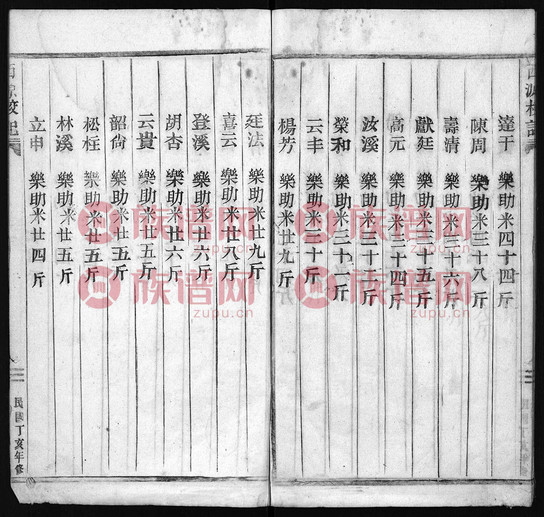 達于 樂助米四十四斤
陳周 樂助米三十八斤
壽清 樂助米三十六斤
獻廷 樂助米三十五斤
高元 樂助米三十四斤
汝溪 樂助米三十三斤
榮和 樂助米三十一斤
云丰 樂助米三十斤
楊芳 樂助米廿九斤
廷法 樂助米廿九斤
喜云 樂助米廿八斤
登溪 樂助米廿六斤
胡杏 樂助米廿六斤
云貴 樂助米廿五斤
韶尙 樂助米廿五斤
松柱 樂助米廿五斤
林溪 樂助米廿五斤
立申 樂助米廿四斤
民國丁亥年修
族谱网
zupu.cn
族谱网
zupu.cn
族谱网
zupu.cn
族谱网
zupu.cn